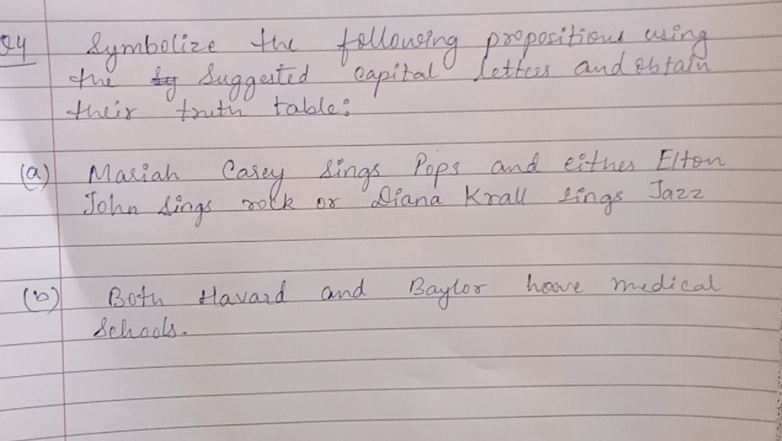 Q4 Symbolize the following propositions using
the Suggested capital letters and obtain
their truth table:
(a) Mariah Carey Sings Pops and either Elton
John Sings rock or Diana Krall Sings Jazz
(b) Both Havard and Baylor have medical
Schools.